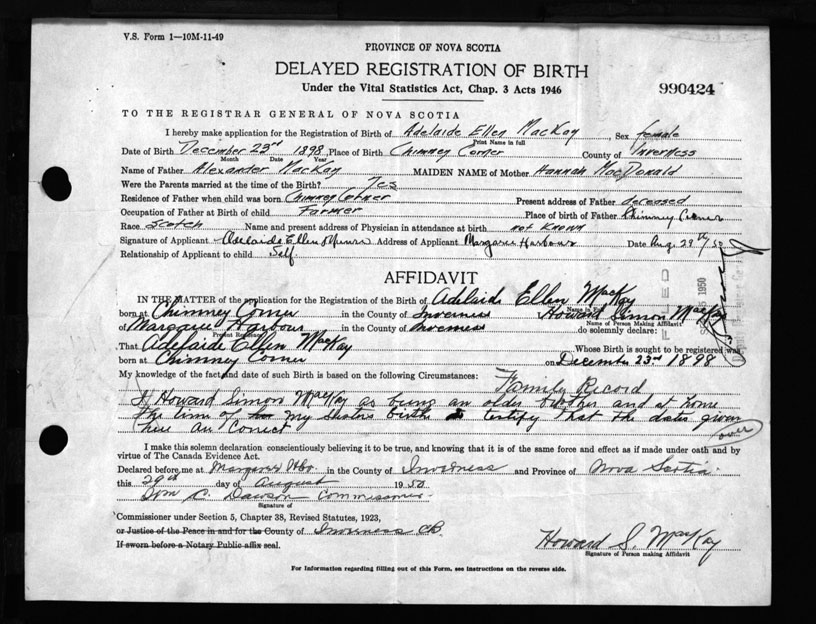 V.S. Form 1—10M-11-49
PROVINCE OF NOVA SCOTIA
DELAYED REGISTRATION OF BIRTH
990424
Under the Vital Statistics Act, Chap. 3 Acts 1946
TO THE REGISTRAR GENERAL OF NOVA SCOTIA
I hereby make application for the Registration of Birth of Adelaide Ellen MacKay Sex female
Print Name in full
Date of Birth December 23rd 1898 Place of Birth Chimney Corner County of Inverness
Month Date Year
Name of Father Alexander MacKay MAIDEN NAME of Mother Hannah MacDonald
Were the Parents married at the time of the Birth? Yes
Residence of Father when child was born Chimney Corner Present address of Father deceased
Occupation of Father at Birth of child Farmer Place of birth of Father Chimney Corner
Race Scotch Name and present address of Physician in attendance at birth not known
Signature of Applicant Adelaide Ellen Address of Applicant Margaree Harbour Date Aug. 29th/50
Relationship of Applicant to child Self.
AFFIDAVIT
FILED
1950
IN THE MATTER of the application for the Registration of the Birth of Adelaide Ellen MacKay
born at Chimney Corner in the County of Inverness Howard Simon MacKay
Name of Person Making Affidavit
of Margaree Harbour in the County of Inverness do solemnly declare:
Present Residence
That Adelaide Ellen MacKay Whose Birth is sought to be registered was
born at Chimney Corner on December 23rd 1898
My knowledge of the fact and date of such Birth is based on the following Circumstances: Family Record
I Howard Simon MacKay as being an older brother and at home
the time of my sisters birth testify that the dates given
here are Correct
over
I make this solemn declaration conscientiously believing it to be true, and knowing that it is of the same force and effect as if made under oath and by
virtue of The Canada Evidence Act.
Declared before me at Margaree Hbr. in the County of Inverness and Province of Nova Scotia
this 29th day of August 1950
C. Dawson Commissioner
Signature of
Commissioner under Section 5, Chapter 38, Revised Statutes, 1923,
or Justice of the Peace in and for the County of Inverness Co.
If sworn before a Notary Public affix seal.
Howard S. MacKay
Signature of Person making Affidavit
For Information regarding filling out of this Form, see instructions on the reverse side.